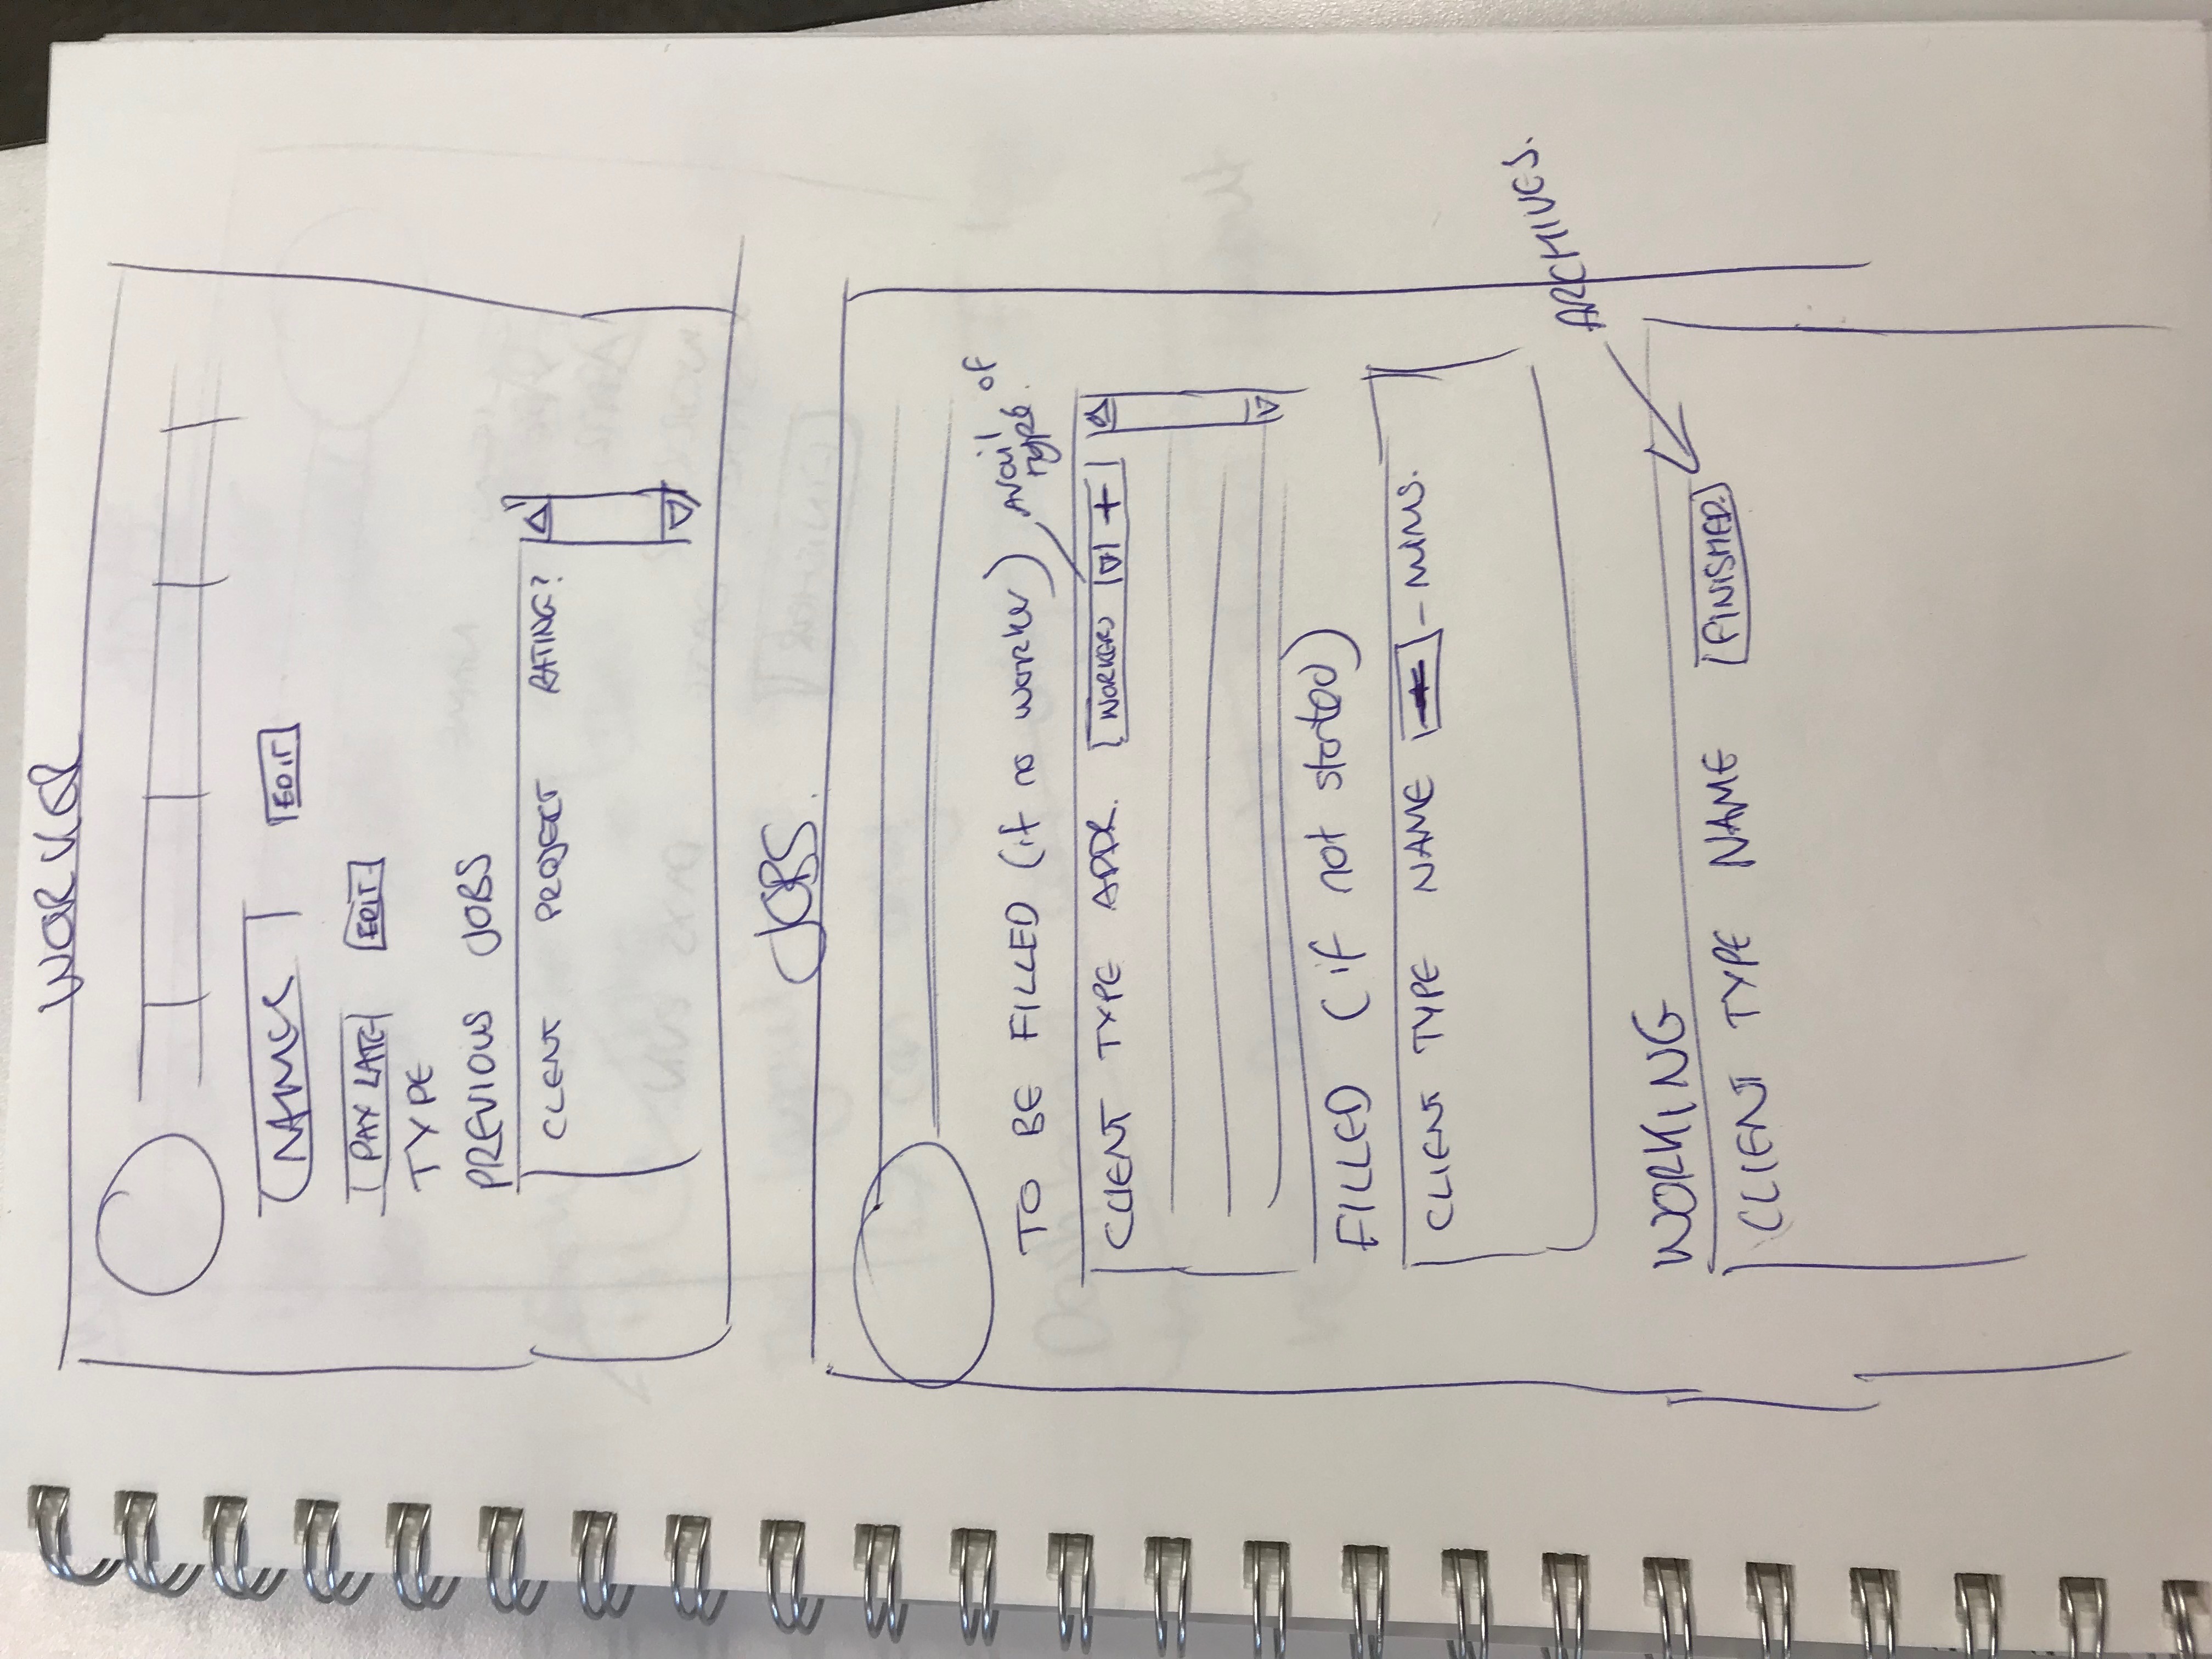 WORKER
NAME
EDIT
PAY RATE EDIT
TYPE
PREVIOUS JOBS
CLENT PROJECT RATING?
JOBS.
TO BE FILLED (if no worker) Avail of
type.
CLIENT TYPE ADDR. WORKERS +
FILLED (if not started)
CLIENT TYPE NAME - MINS.
ARCHIVES.
WORKING
CLIENT TYPE NAME FINISHED.